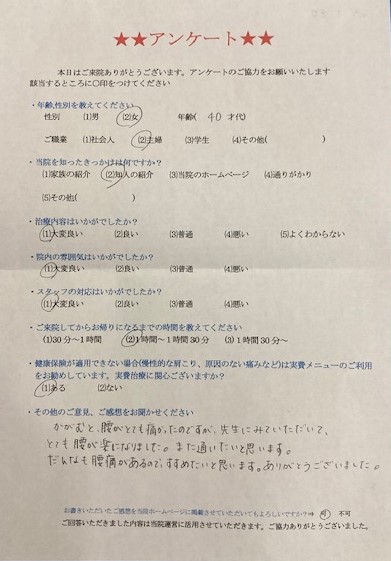 ★★アンケート★★
本日はご来院ありがとうございます。アンケートのご協力をお願いいたします
該当するところに〇印をつけてください
・年齢,性別を教えてください
性別 (1)男 (2)女 年齢( 40 才代)
ご職業 (1)社会人 (2)主婦 (3)学生 (4)その他( )
・当院を知ったきっかけは何ですか?
(1)家族の紹介 (2)知人の紹介 (3)当院のホームページ (4)通りがかり
(5)その他( )
・治療内容はいかがでしたか?
(1)大変良い (2)良い (3)普通 (4)悪い (5)よくわからない
・院内の雰囲気はいかがでしたか?
(1)大変良い (2)良い (3)普通 (4)悪い
・スタッフの対応はいかがでしたか?
(1)大変良い (2)良い (3)普通 (4)悪い
・ご来院してからお帰りになるまでの時間を教えてください
(1)30分～1時間 (2)1時間～1時間30分 (3)1時間30分～
・健康保険が適用できない場合(慢性的な肩こり、原因のない痛みなど)は実費メニューのご利用
をお勧めしています。実費治療に関心ございますか?
(1)ある (2)ない
・その他のご意見、ご感想をお聞かせください
かがむと、腰がとても痛かったのですが、先生にみていただいて、
とても腰が楽になりました。また通いたいと思います。
だんなも腰痛があるので、すすめたいと思います。ありがとうございました。
お書きいただいたご感想を当院ホームページに掲載させていただいてもよろしいですか?⇒ 可 不可
ご回答いただきました内容は当院運営に活用させていただきます。ご協力ありがとうございました。